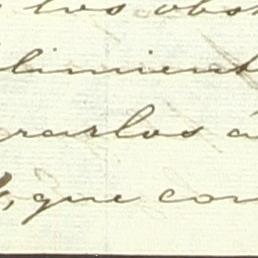 los obs
limient
rarlos á
, que con